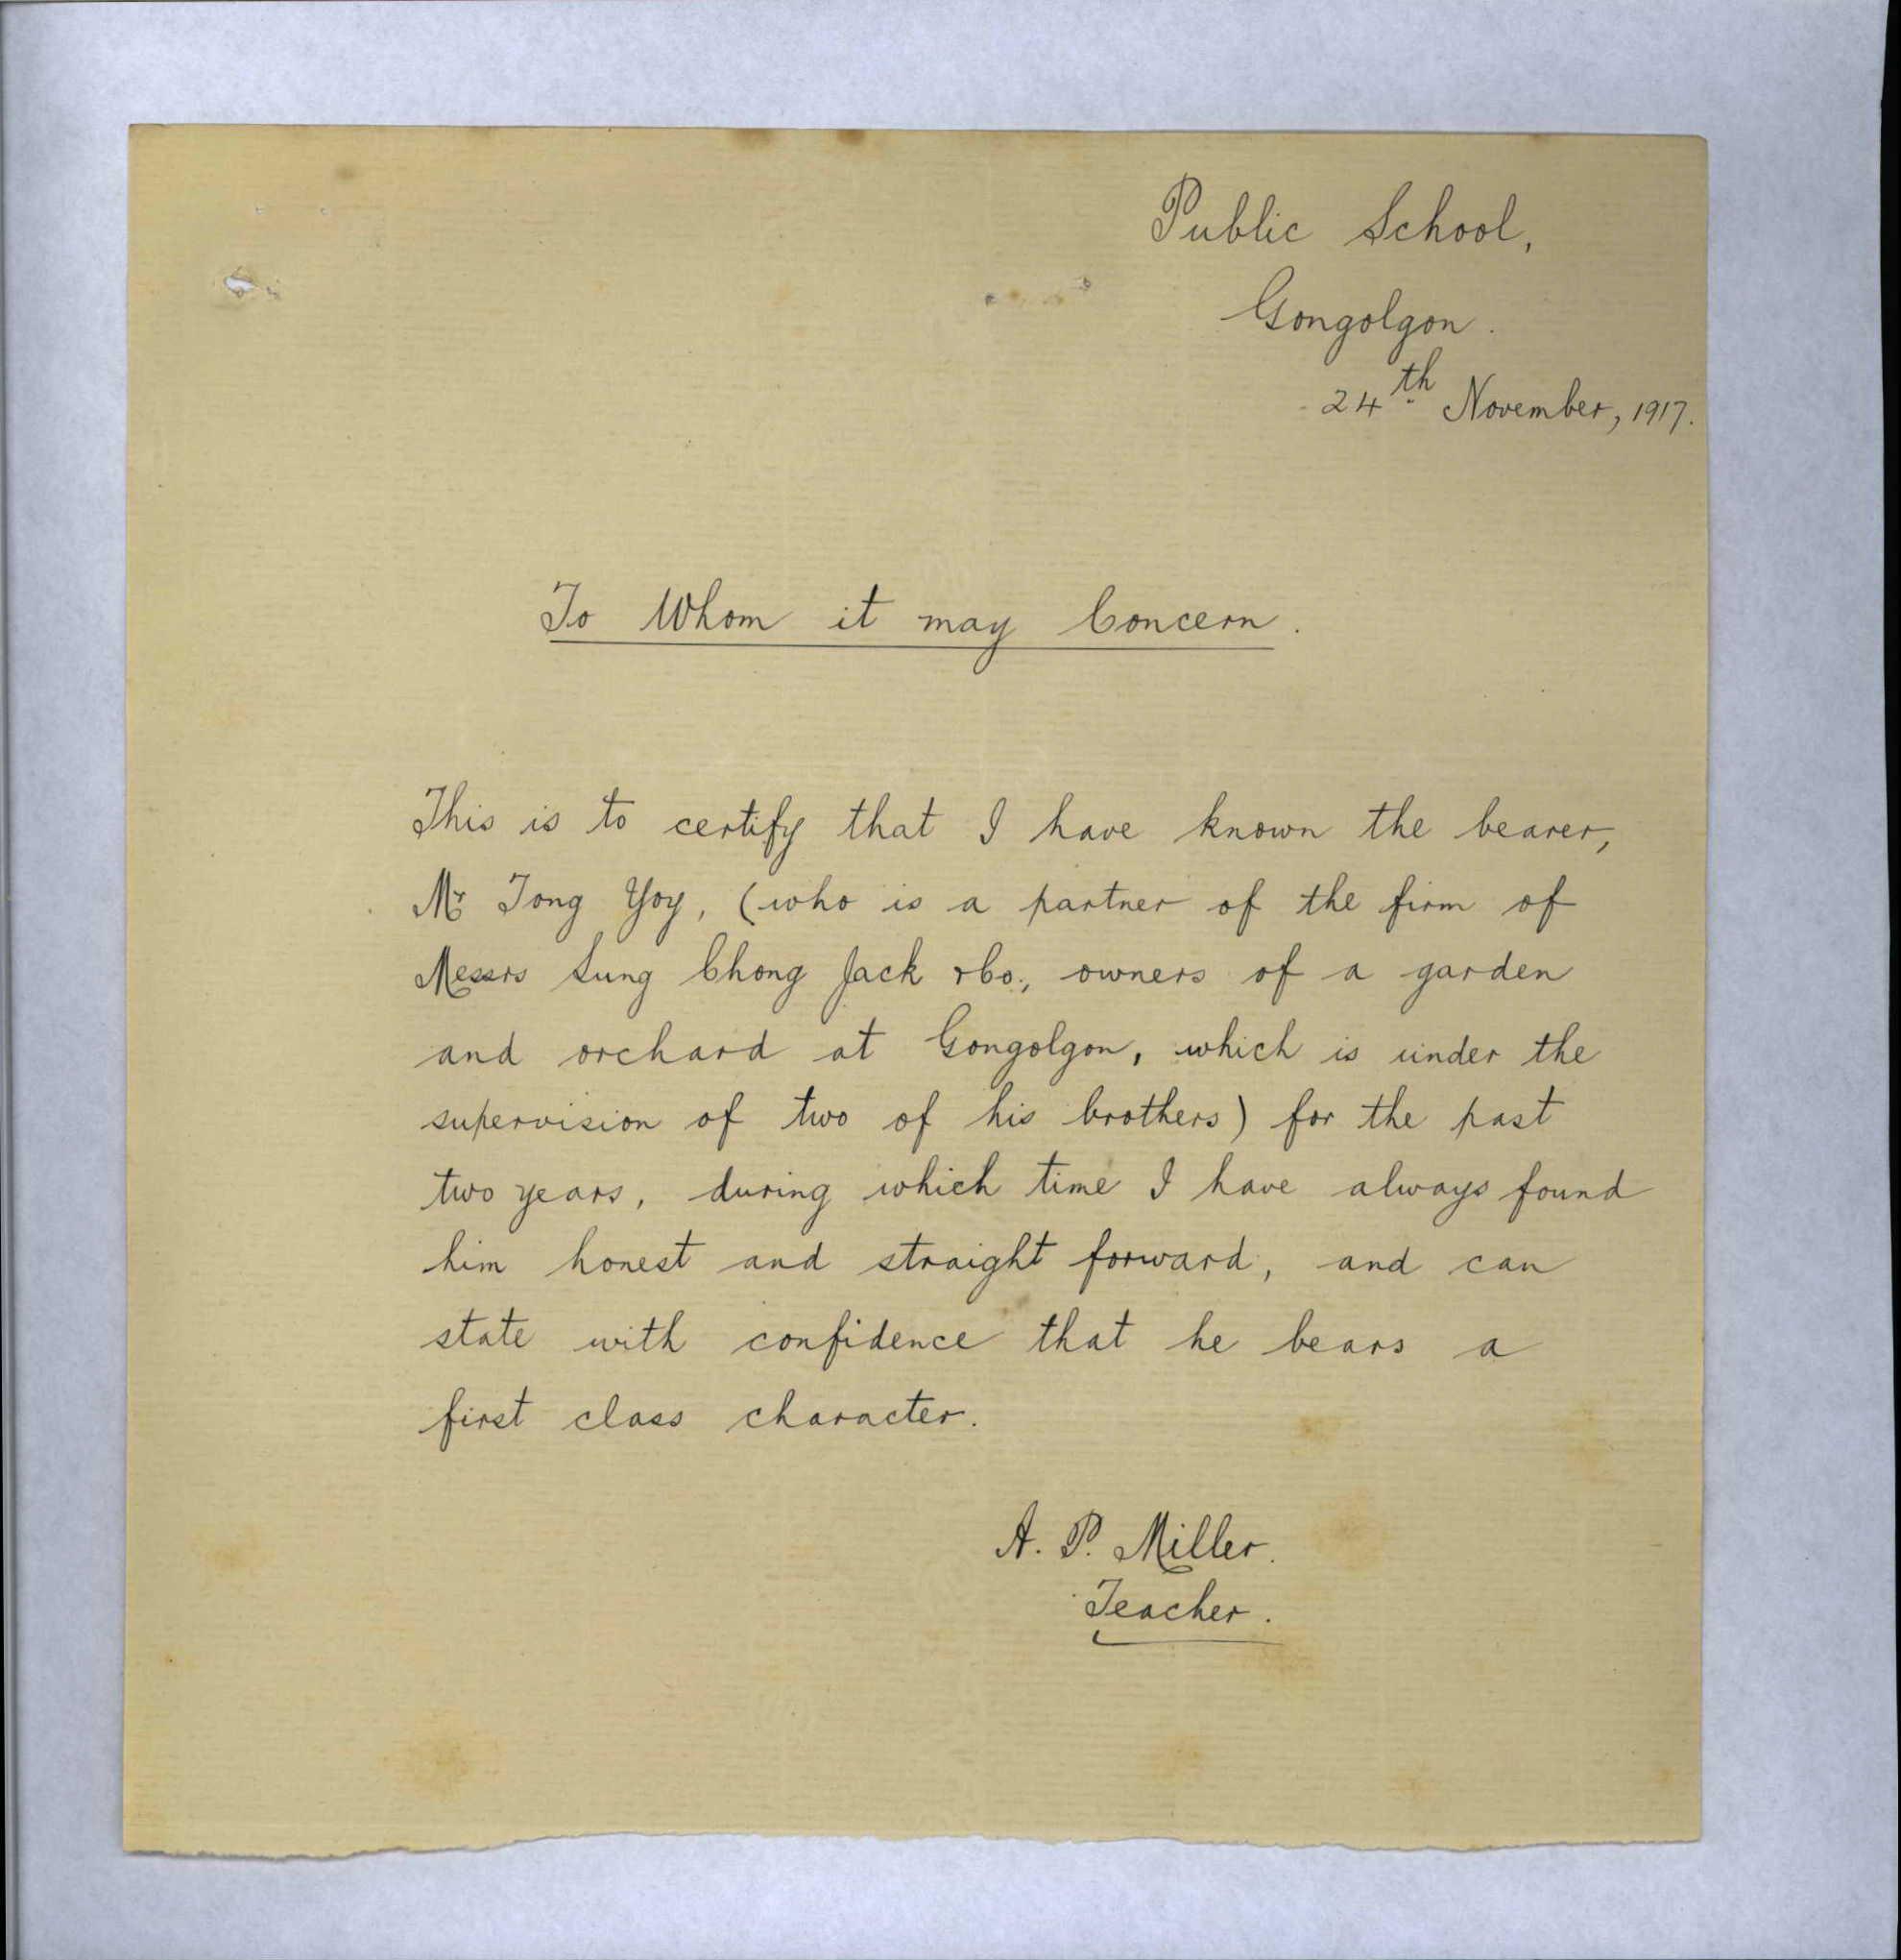 Public School,
Gongolgon.
24th November, 1917.
To Whom it may Concern.
This is to certify that I have known the bearer,
Mr Tong Yoy, (who is a partner of the firm of
Messrs Sung Chong Jack & Co., owners of a garden
and orchard at Gongolgon, which is under the
supervision of two of his brothers) for the past
two years, during which time I have always found
him honest and straight forward, and can
state with confidence that he bears a
first class character.
A. P. Miller.
Teacher.